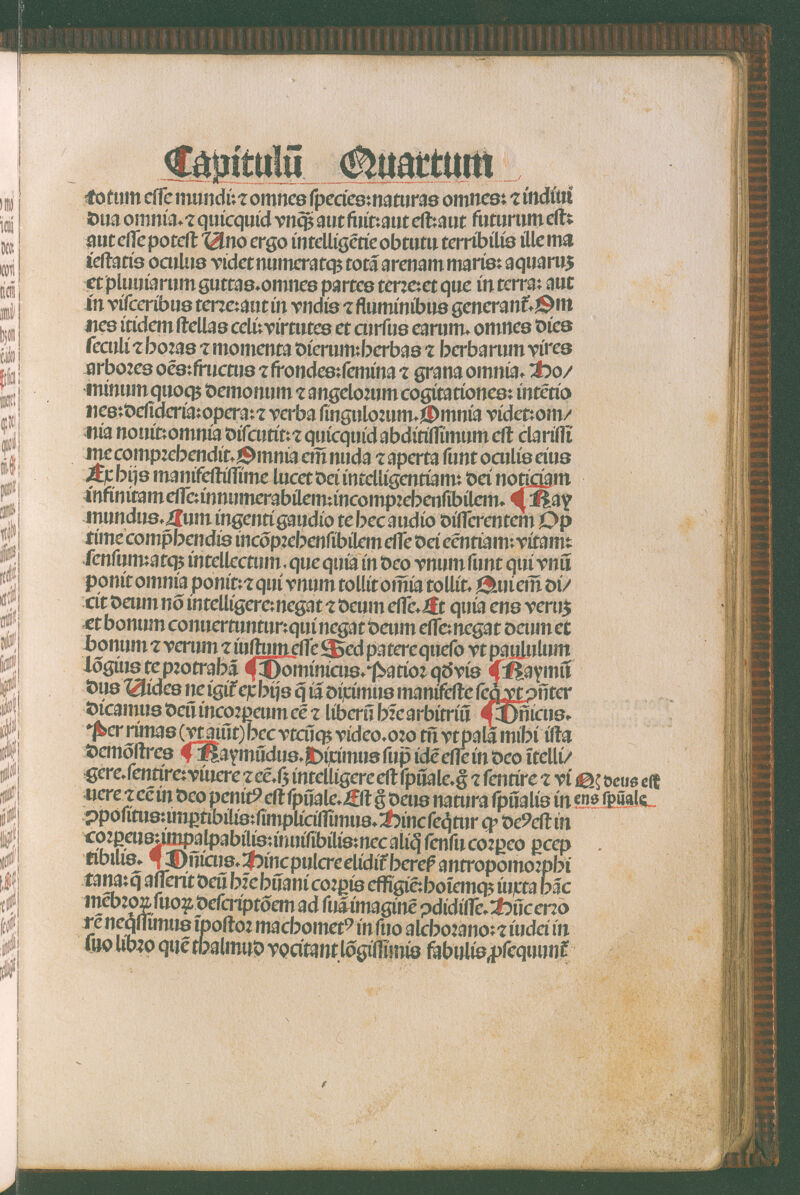 Capitulū Quartum
totum eſſe mundi: ⁊ omnes ſpecies: naturas omnes: ⁊ indiui
dua omnia. ⁊ quicquid vnqꝫ aut fuit: aut eſt: aut futurum eſt:
aut eſſe poteſt Uno ergo intelligētie obtutu terribilis ille ma
ieſtatis oculus videt numeratqꝫ totā arenam maris: aquaruꝫ
et pluuiarum guttas. omnes partes terꝛe: et que in terra: aut
in viſceribus terꝛe: aut in vndis ⁊ fluminibus generant᷑. Om
nes itidem ſtellas celi: virtutes et curſus earum. omnes dies
ſeculi ⁊ hoꝛas ⁊ momenta dierum: herbas ⁊ herbarum vires
arboꝛes oēs: fructus ⁊ frondes: ſemina ⁊ grana omnia. Ho/
minum quoqꝫ demonum ⁊ angeloꝛum cogitationes: intētio
nes: deſideria: opera: ⁊ verba ſinguloꝛum. Omnia videt: om/
nia nouit: omnia diſcutit: ⁊ quicquid abditiſſimum eſt clariſſi
me compꝛehendit. Omnia em̄ nuda ⁊ aperta ſunt oculis eius
Ex hijs manifeſtiſſime lucet dei intelligentiam: dei noticiam
infinitam eſſe: innumerabilem: incompꝛehenſibilem. ¶ Ray
mundus. Cum ingenti gaudio te hec audio diſſerentem Op
time comp̄hendis incōpꝛehenſibilem eſſe dei eēntiam: vitam:
ſenſum: atqꝫ intellectum. que quia in deo vnum ſunt qui vnū
ponit omnia ponit: ⁊ qui vnum tollit om̄ia tollit. Qui em̄ di/
cit deum nō intelligere: negat ⁊ deum eſſe. Et quia ens veruꝫ
et bonum conuertuntur: qui negat deum eſſe: negat deum et
bonum ⁊ verum ⁊ iuſtum eſſe Sed patere queſo vt paululum
lōgius te pꝛotrahā ¶ Dominicus. Patioꝛ qd̄ vis ¶ Raymū
dus Uides ne igit᷑ ex hijs q̄ iā diximus manifeſte ſeq̄ vt ↄn̄ter
dicamus deū incoꝛpeum eē ⁊ liberū hr̄e arbitriū ¶ Dn̄icus.
Per rimas (vt aiūt) hec vtcūqꝫ video. oꝛo tn̄ vt palā mihi iſta
demōſtres ¶ Raymūdus. Diximus ſup̄ idē eſſe in deo ītelli/
gere. ſentire: viuere ⁊ eē. ſꝫ intelligere eſt ſpūale. g̊ ⁊ ſentire ⁊ vi
uere ⁊ eē in deo penitꝰ eſt ſpūale. Eſt g̊ deus natura ſpūalis in
ↄpoſitus: imptibilis: ſimpliciſſimus. Hinc ſeq̄tur ꝙ deꝰ eſt in
coꝛpeus: impalpabilis: inuiſibilis: nec aliq̄ ſenſu coꝛpeo pcep
tibilis. ¶ Dn̄icus. Hinc pulcre elidit᷑ hereſ᷑ antropomoꝛphi
tana: q̄ aſſerit deū hr̄e hūani coꝛpis effigiē: hoīemqꝫ iuxta hāc
mēbꝛoꝝ ſuoꝝ deſcriptōem ad ſuā imaginē ↄdidiſſe. Hūc erꝛo
rē neq̄ſſimus īpoſtoꝛ machometꝰ in ſuo alchoꝛano: ⁊ iudei in
ſuo libꝛo quē thalmud vocitant lōgiſſimis fabulis ꝓſequunt᷑
Qꝫ deus eſt
ens ſpūale